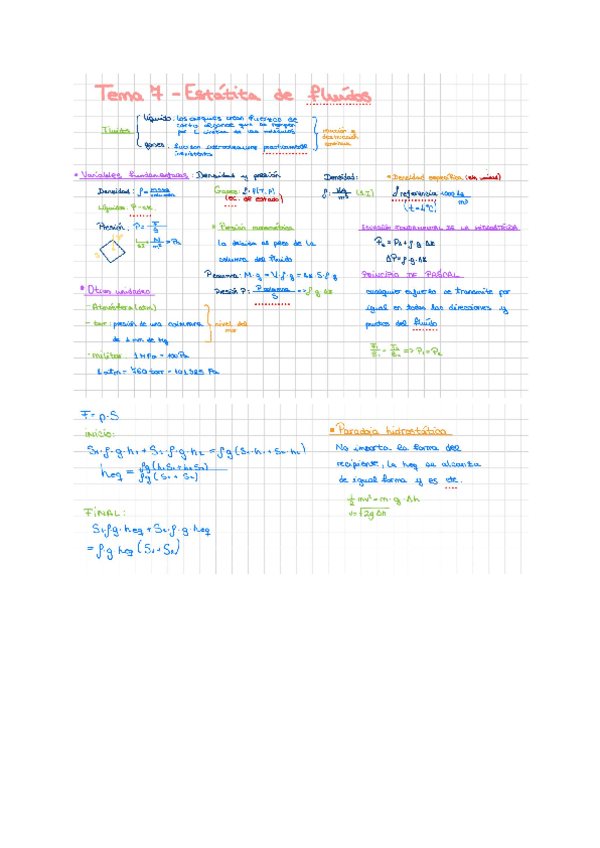 Tema 7 - Estátita de fluídos
Fluidos
líquido: los choques crean fuerzas de
corto alcance que se rompen
por
gases: Sus son interacciones practicamente
inexistentes
continua
• Variables fundamentales: Densidad y presión
Densidad: ρ = masa / volumen
Líquidos: ρ = cte
Presión: P = F/S
N/m² => Pa
Gases: ρ = f(T, P)
(ec. de estado)
• Presión manométrica
la debida al peso de la
columna del fluido
P columna = M·g = V·ρ·g = Δz·S·ρ·g
Presión P: P columna / S => ρ·g·Δz
Densidad:
ρ: kg/m³ (S.I)
• Densidad específica (sin unidad)
ρ referencia 1000 kg/m³
(t = 4ºC)
ECUACIÓN FUNDAMENTAL DE LA HIDROSTÁTICA
ΔP = ρ·g·Δz
PRINCIPIO DE PASCAL
cualquier esfuerzo se transmite por
igual en todas las direcciones y
puntos del fluído
F₁/S₁ = F₂/S₂ => P₁ = P₂
• Otras unidades
- Atmósfera (atm)
- torr: presión de una columna
de 1 mm de Hg
nivel del mar
- milibar: 1 HPa = 100 Pa
1 atm = 760 torr = 101325 Pa
F = p·S
inicio:
S₁·ρ·g·h₁ + S₂·ρ·g·h₂ = ρg(S₁·h₁ + S₂·h₂)
heq = ρg(h₁S₁ + h₂S₂) / ρg(S₁ + S₂)
FINAL:
S₁ρg·heq + S₂·ρ·g·heq
= ρ·g heq (S₁ + S₂)
• Paradoja hidrostática
No importa la forma del
recipiente, la heq se alcanza
de igual forma y es cte.
½ mv² = m·g·Δh
v = √2gΔh